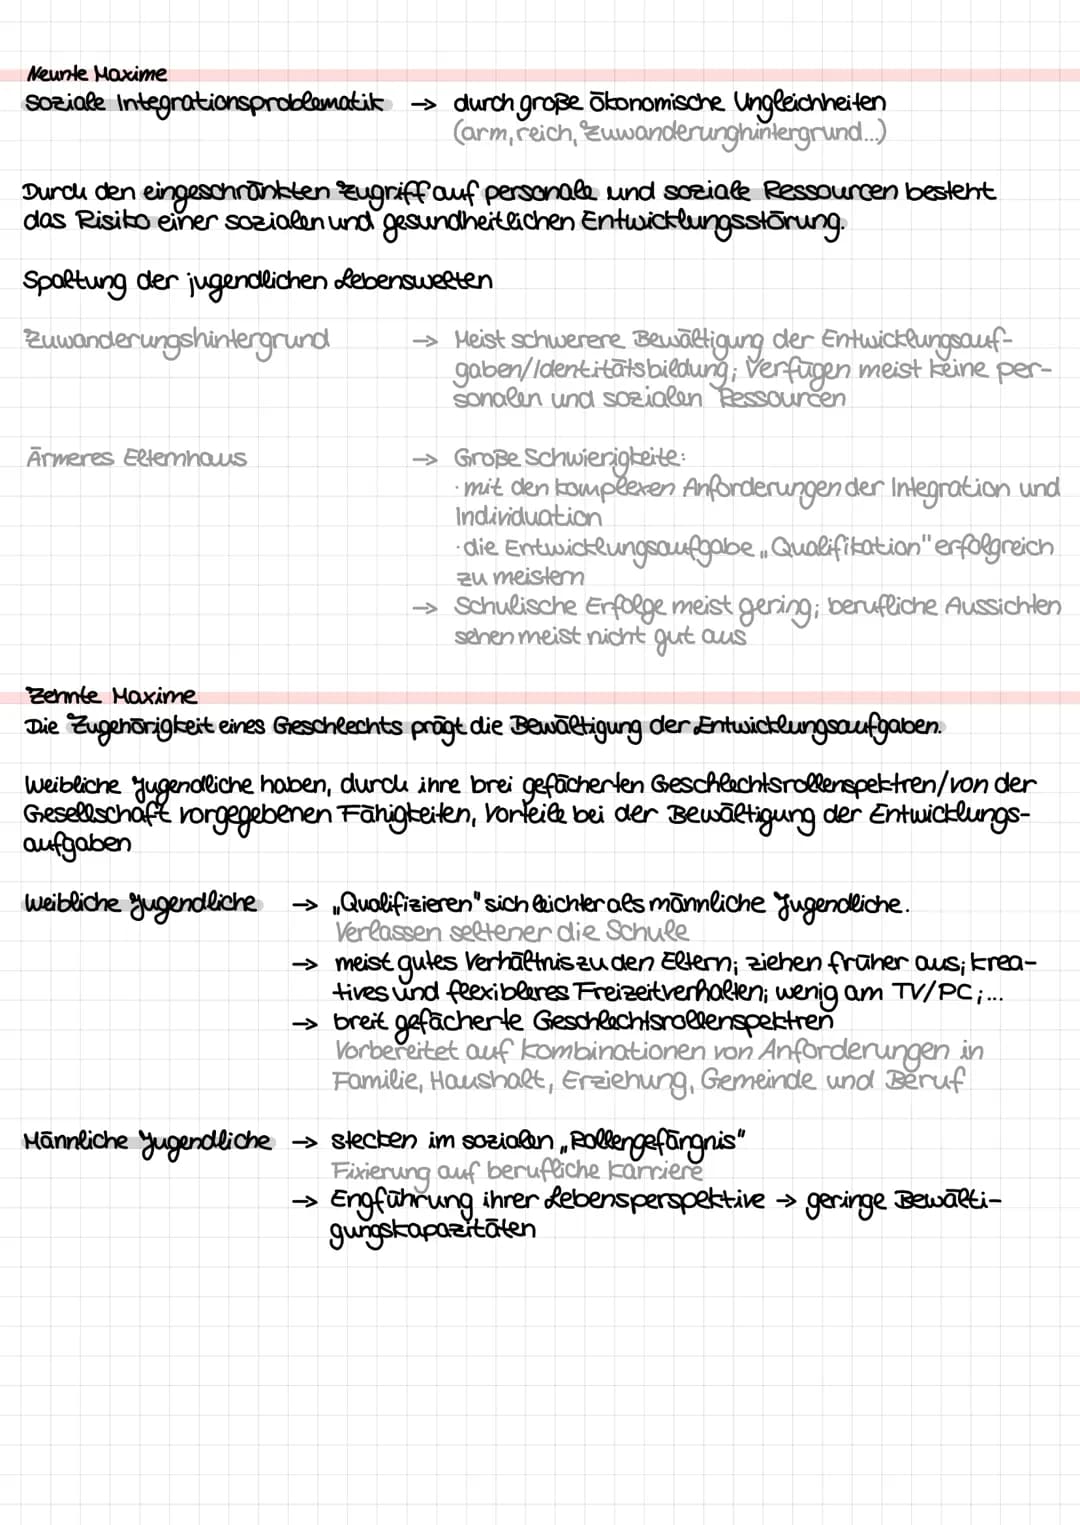 Neunte Maxime
Soziale Integrationsproblematik → durch große Ökonomische Ungleichheiten
(arm, reich, Zuwanderunghintergrund...)
Durch den eingeschränkten Zugriff auf personale und soziale Ressourcen besteht
das Risiko einer sozialen und gesundheitlichen Entwicklungsstörung.
Spaltung der jugendlichen Lebenswelten
Zuwanderungshintergrund → Meist schwerere Bewältigung der Entwicklungsauf-
gaben/Identitätsbildung; Verfügen meist keine per-
sonalen und sozialen Ressourcen
Ärmeres Elternhaus → Große Schwierigkeite:
· mit den komplexen Anforderungen der Integration und
Individuation
· die Entwicklungsaufgabe „Qualifikation" erfolgreich
zu meistern
→ Schulische Erfolge meist gering; berufliche Aussichten
sehen meist nicht gut aus
Zehnte Maxime
Die Zugehörigkeit eines Geschlechts prägt die Bewältigung der Entwicklungsaufgaben.
Weibliche Jugendliche haben, durch ihre brei gefächerten Geschlechtsrollenspektren/von der
Gesellschaft vorgegebenen Fähigkeiten, Vorteile bei der Bewältigung der Entwicklungs-
aufgaben
Weibliche Jugendliche → „Qualifizieren" sich leichter als männliche Jugendliche.
Verlassen seltener die Schule
→ meist gutes Verhältnis zu den Eltern; ziehen früher aus; krea-
tives und flexibleres Freizeitverhalten; wenig am TV/PC;...
→ breit gefächerte Geschlechtsrollenspektren
Vorbereitet auf Kombinationen von Anforderungen in
Familie, Haushalt, Erziehung, Gemeinde und Beruf
Männliche Jugendliche → stecken im sozialen „Rollengefängnis"
Fixierung auf berufliche Karriere
→ Engführung ihrer Lebensperspektive → geringe Bewälti-
gungskapazitäten